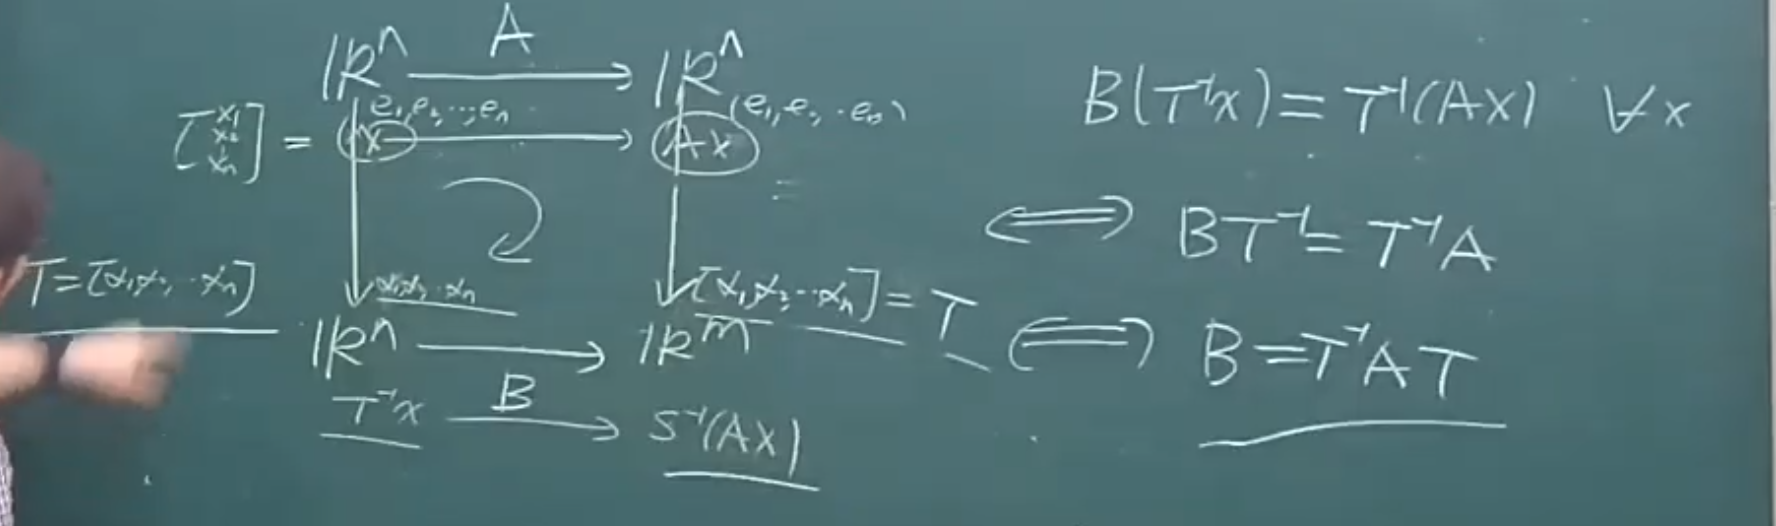 ℝⁿ —A→ ℝⁿ
e₁,e₂,…,eₙ (e₁,e₂,⋯eₙ)
[x₁ x₂ ⋮ xₙ] = x → Ax
T=[α₁,α₂,⋯αₙ] α₁,α₂⋯αₙ [α₁,α₂⋯αₙ]=T
ℝⁿ —B→ ℝᵐ
T⁻¹x → S⁻¹(Ax)
B(T⁻¹x)=T⁻¹(Ax) ∀x
⟺ BT⁻¹=T⁻¹A
⟺ B=T⁻¹AT